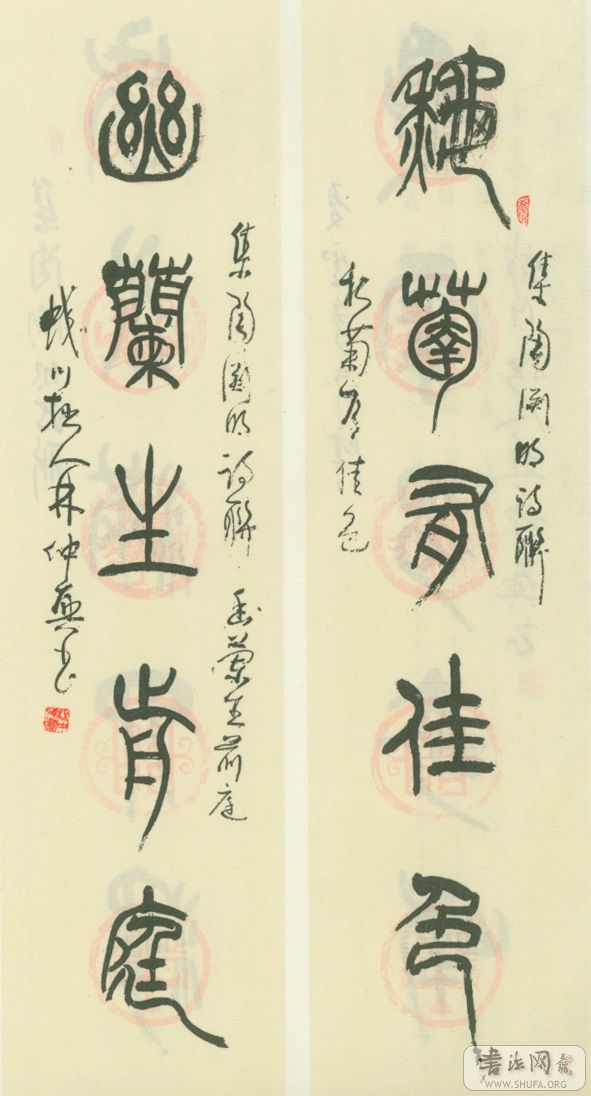 秋菊有佳色
集陶渊明诗联
秋菊有佳色
幽蘭生前庭
集陶渊明诗联 幽蘭生前庭
林仲興书
书法网
WWW.SHUFA.ORG